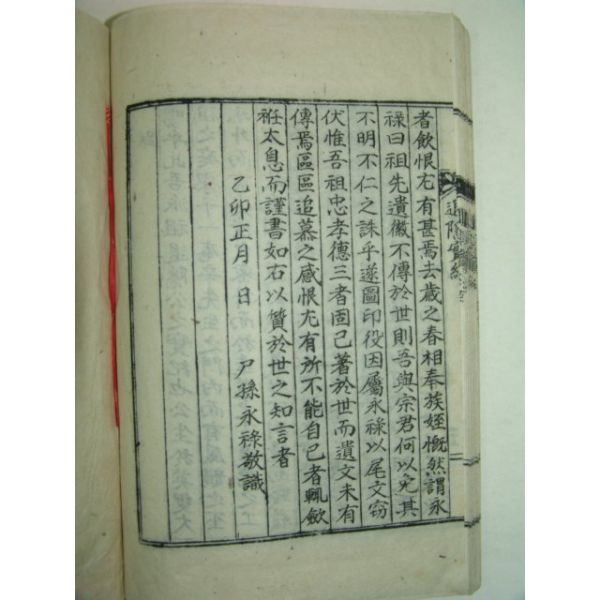 者飮恨尤有甚焉去歲之春相奉族姪慨然謂永
祿曰祖先遺徽不傳於世則吾與宗君何以完其
不明不仁之誅乎遂圖印役因屬永祿以尾文窃
伏惟吾祖忠孝德三者固已著於世而遺文未有
傳焉區區追慕之感恨尤有所不能自已者輒斂
袵太息而謹書如右以質於世之知言者
乙卯正月 日 尹孫永祿敬識